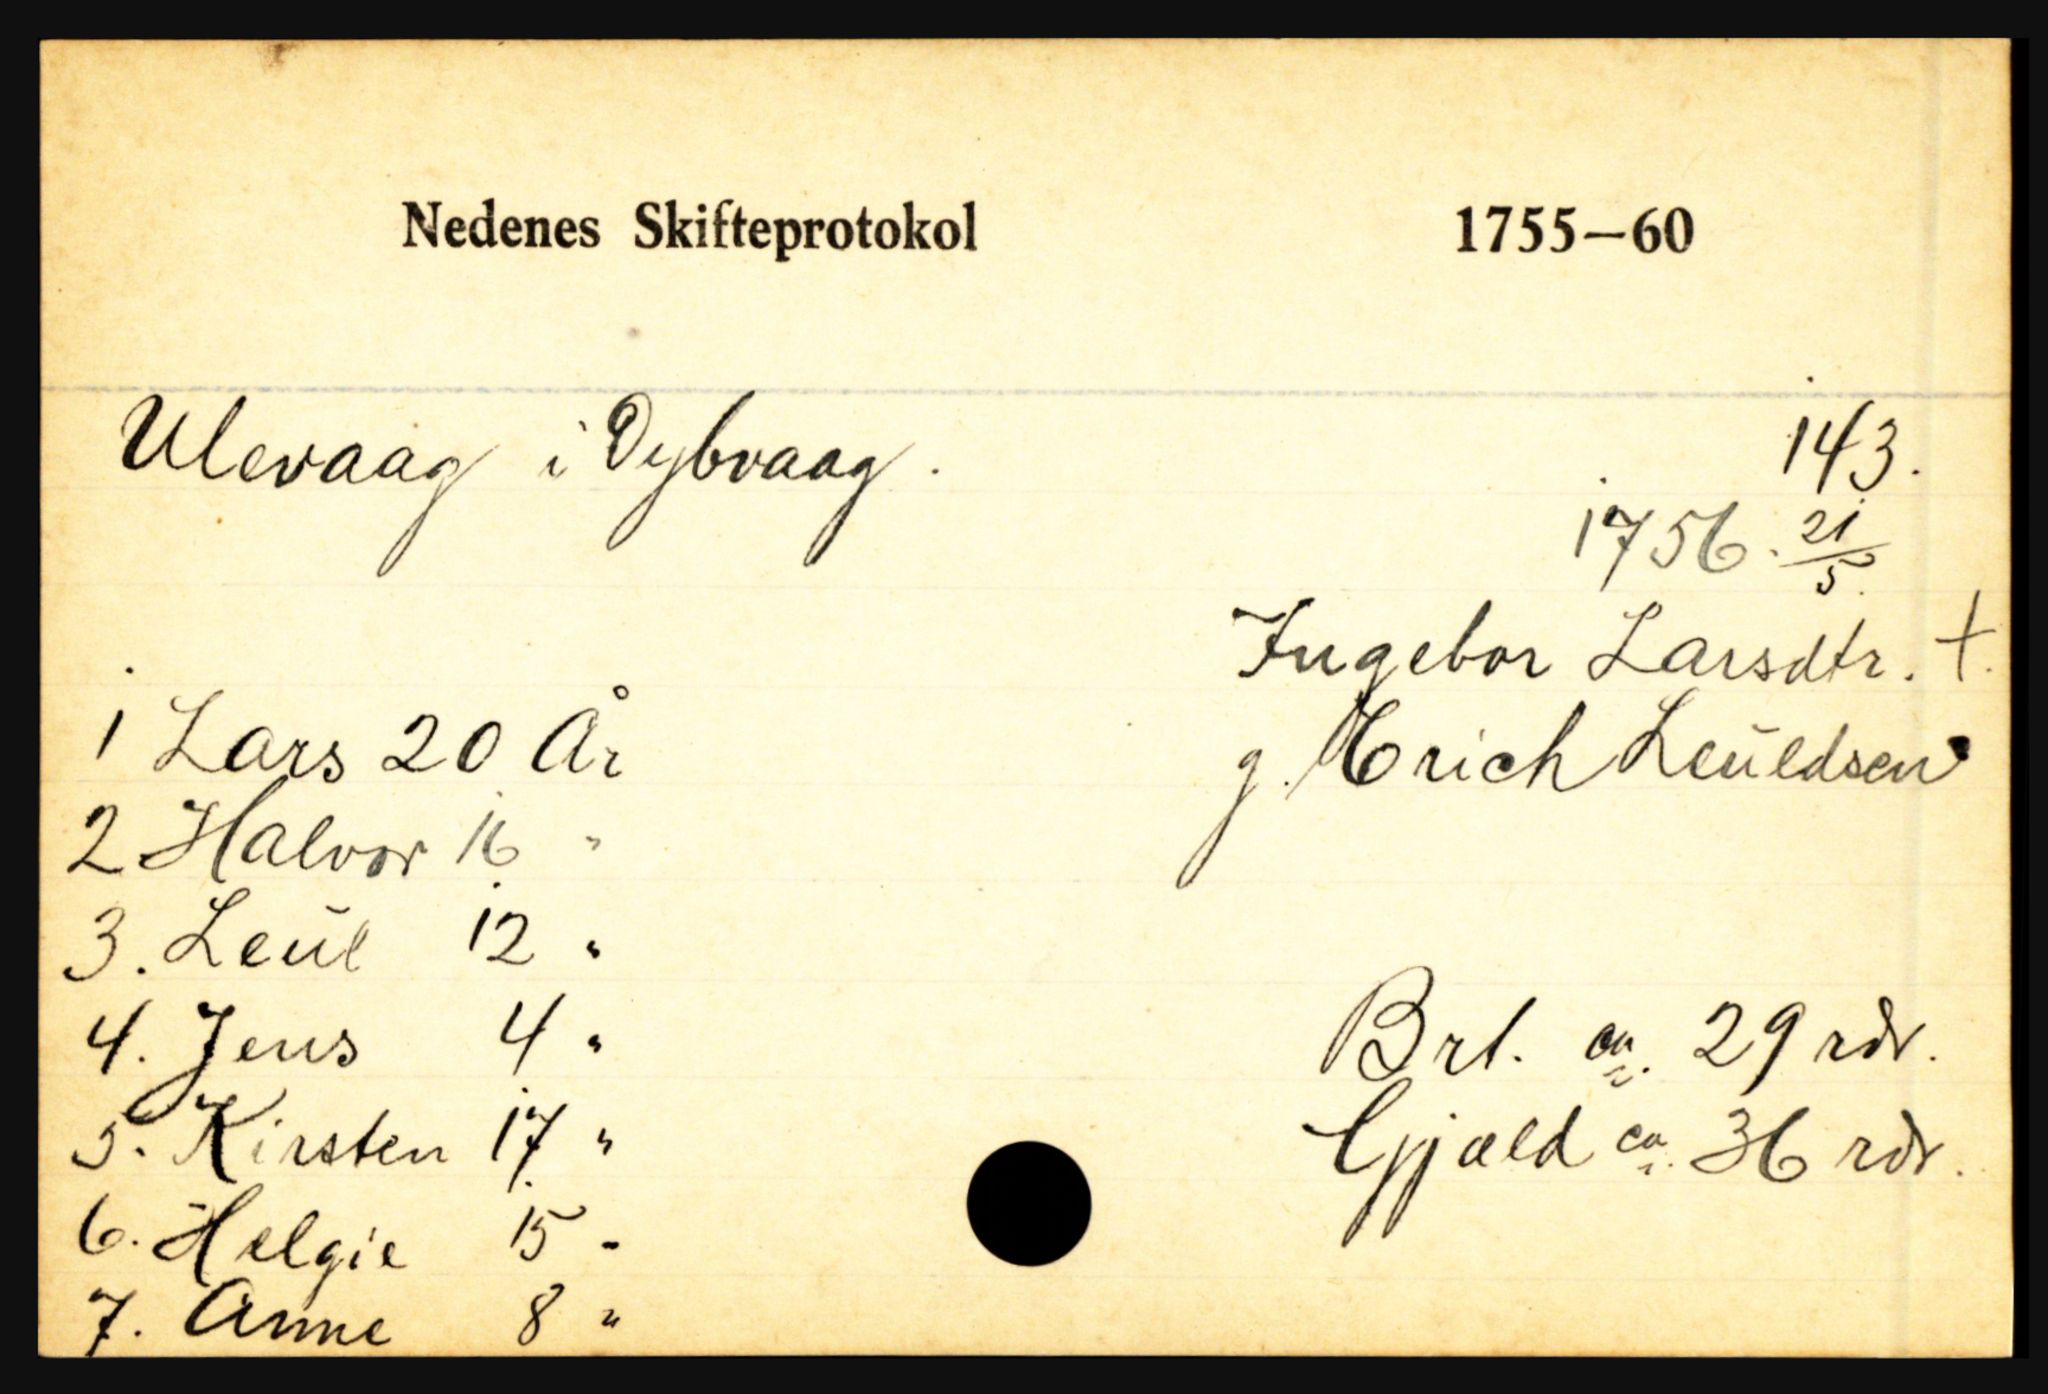 Nedenes Skifteprotokol 1755—60
Ulevaag i Dybvaag. 143.
1756. 21/5.
Ingebor Larsdtr. †.
g. Erich Leuldsen
1 Lars 20 År
2 Halvor 16 "
3. Leul 12 "
4. Jens 4 "
5. Kirsten 17 "
6. Helgie 15 "
7. Anne 8 "
Brt. ca. 29 rdr.
Gjæld ca. 36 rdr.